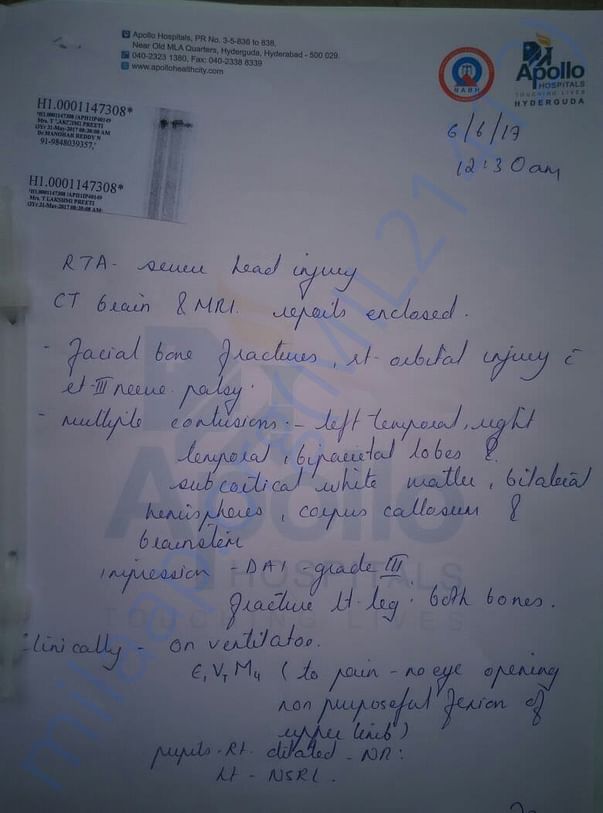 Apollo Hospitals, PR No. 3-5-836 to 838,
Near Old MLA Quarters, Hyderguda, Hyderabad - 500 029.
040-2323 1380, Fax: 040-2338 8339
www.apollohealthcity.com
NABH
Apollo
HOSPITALS
TOUCHING LIVES
HYDERGUDA
H1.0001147308*
*H1.0001147308 /APH1IP40149
Mrs. T LAKSHMI PREETI
31-May-2017 08:20:08 AM
Dr.MANOHAR REDDY N
91-9848039357,
H1.0001147308*
*H1.0001147308 /APH1IP40149
Mrs. T LAKSHMI PREETI
31-May-2017 08:20:08 AM
6/6/17
12:30am
RTA - severe head injury
CT brain & MRI. repoits enclosed.
- facial bone fractures, rt - orbital injury c̄
rt - III nerve palsy.
- multiple contusions - left temporal, right
temporal, biparietal lobes &
subcortical white matter, bilateral
hemispheres, corpus callosum &
brainstem
impression - DAI - grade III
fracture lt - leg. both bones.
Clinically - on ventilator.
E₁ V₁ M₄ ( to pain - no eye opening
non purposeful flexion of
upper limb)
pupils - Rt. dilated - NR:
Lt - NSRL.
Apollo
HOSPITALS
TOUCHING LIVES